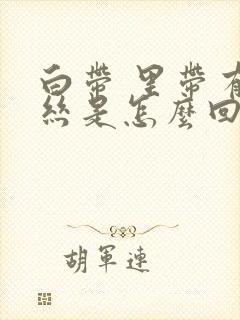 白帶 里帶有
絲是怎麼回
胡軍連